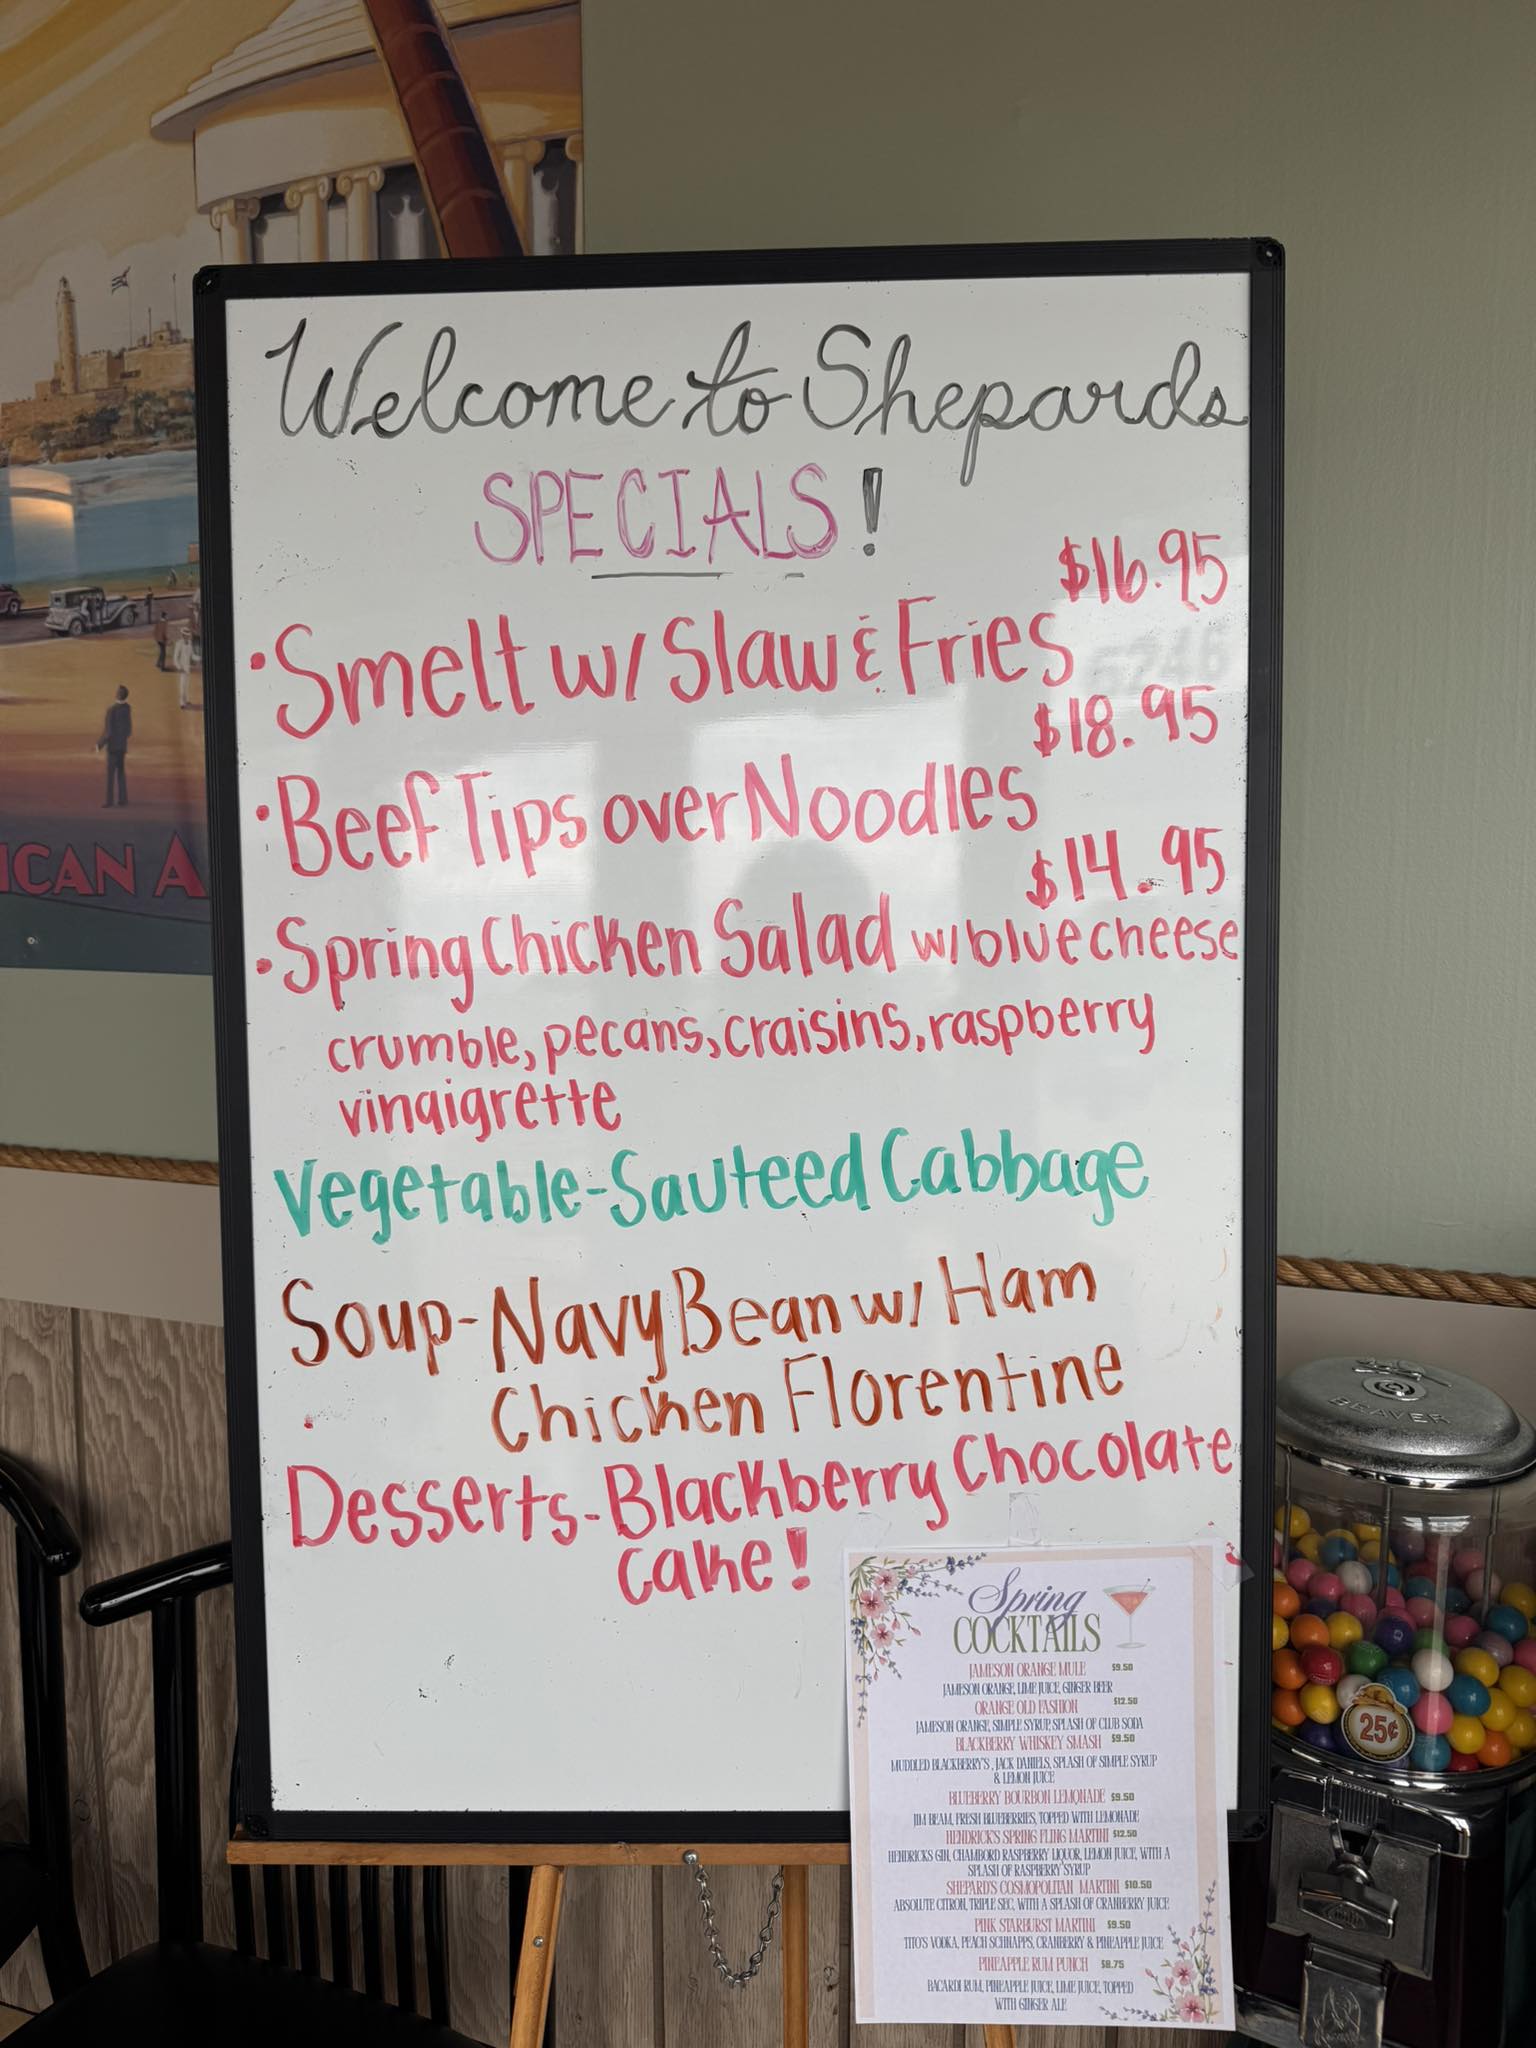 Welcome to Shepards
SPECIALS!
$16.95
• Smelt w/ Slaw & Fries
$18.95
• Beef Tips over Noodles
$14.95
• Spring Chicken Salad w/ blue cheese
crumble, pecans, craisins, raspberry
vinaigrette
Vegetable - Sauteed Cabbage
Soup - Navy Bean w/ Ham
Chicken Florentine
Desserts - Blackberry Chocolate
Cake!
Spring
COCKTAILS
JAMESON ORANGE MULE $9.50
JAMESON ORANGE, LIME JUICE, GINGER BEER
ORANGE OLD FASHION $12.50
JAMESON ORANGE, SIMPLE SYRUP, SPLASH OF CLUB SODA
BLACKBERRY WHISKEY SMASH $9.50
MUDDLED BLACKBERRY'S, JACK DANIELS, SPLASH OF SIMPLE SYRUP
& LEMON JUICE
BLUEBERRY BOURBON LEMONADE $9.50
JIM BEAM, FRESH BLUEBERRIES, TOPPED WITH LEMONADE
HENDRICK'S SPRING FLING MARTINI $12.50
HENDRICKS GIN, CHAMBORD RASPBERRY LIQUOR, LEMON JUICE, WITH A
SPLASH OF RASPBERRY SYRUP
SHEPARD'S COSMOPOLITAN MARTINI $10.50
ABSOLUTE CITRON, TRIPLE SEC, WITH A SPLASH OF CRANBERRY JUICE
PINK STARBURST MARTINI $9.50
TITO'S VODKA, PEACH SCHNAPPS, CRANBERRY & PINEAPPLE JUICE
PINEAPPLE RUM PUNCH $8.75
BACARDI RUM, PINEAPPLE JUICE, LIME JUICE, TOPPED
WITH GINGER ALE
ICAN A
BEAVER
25¢